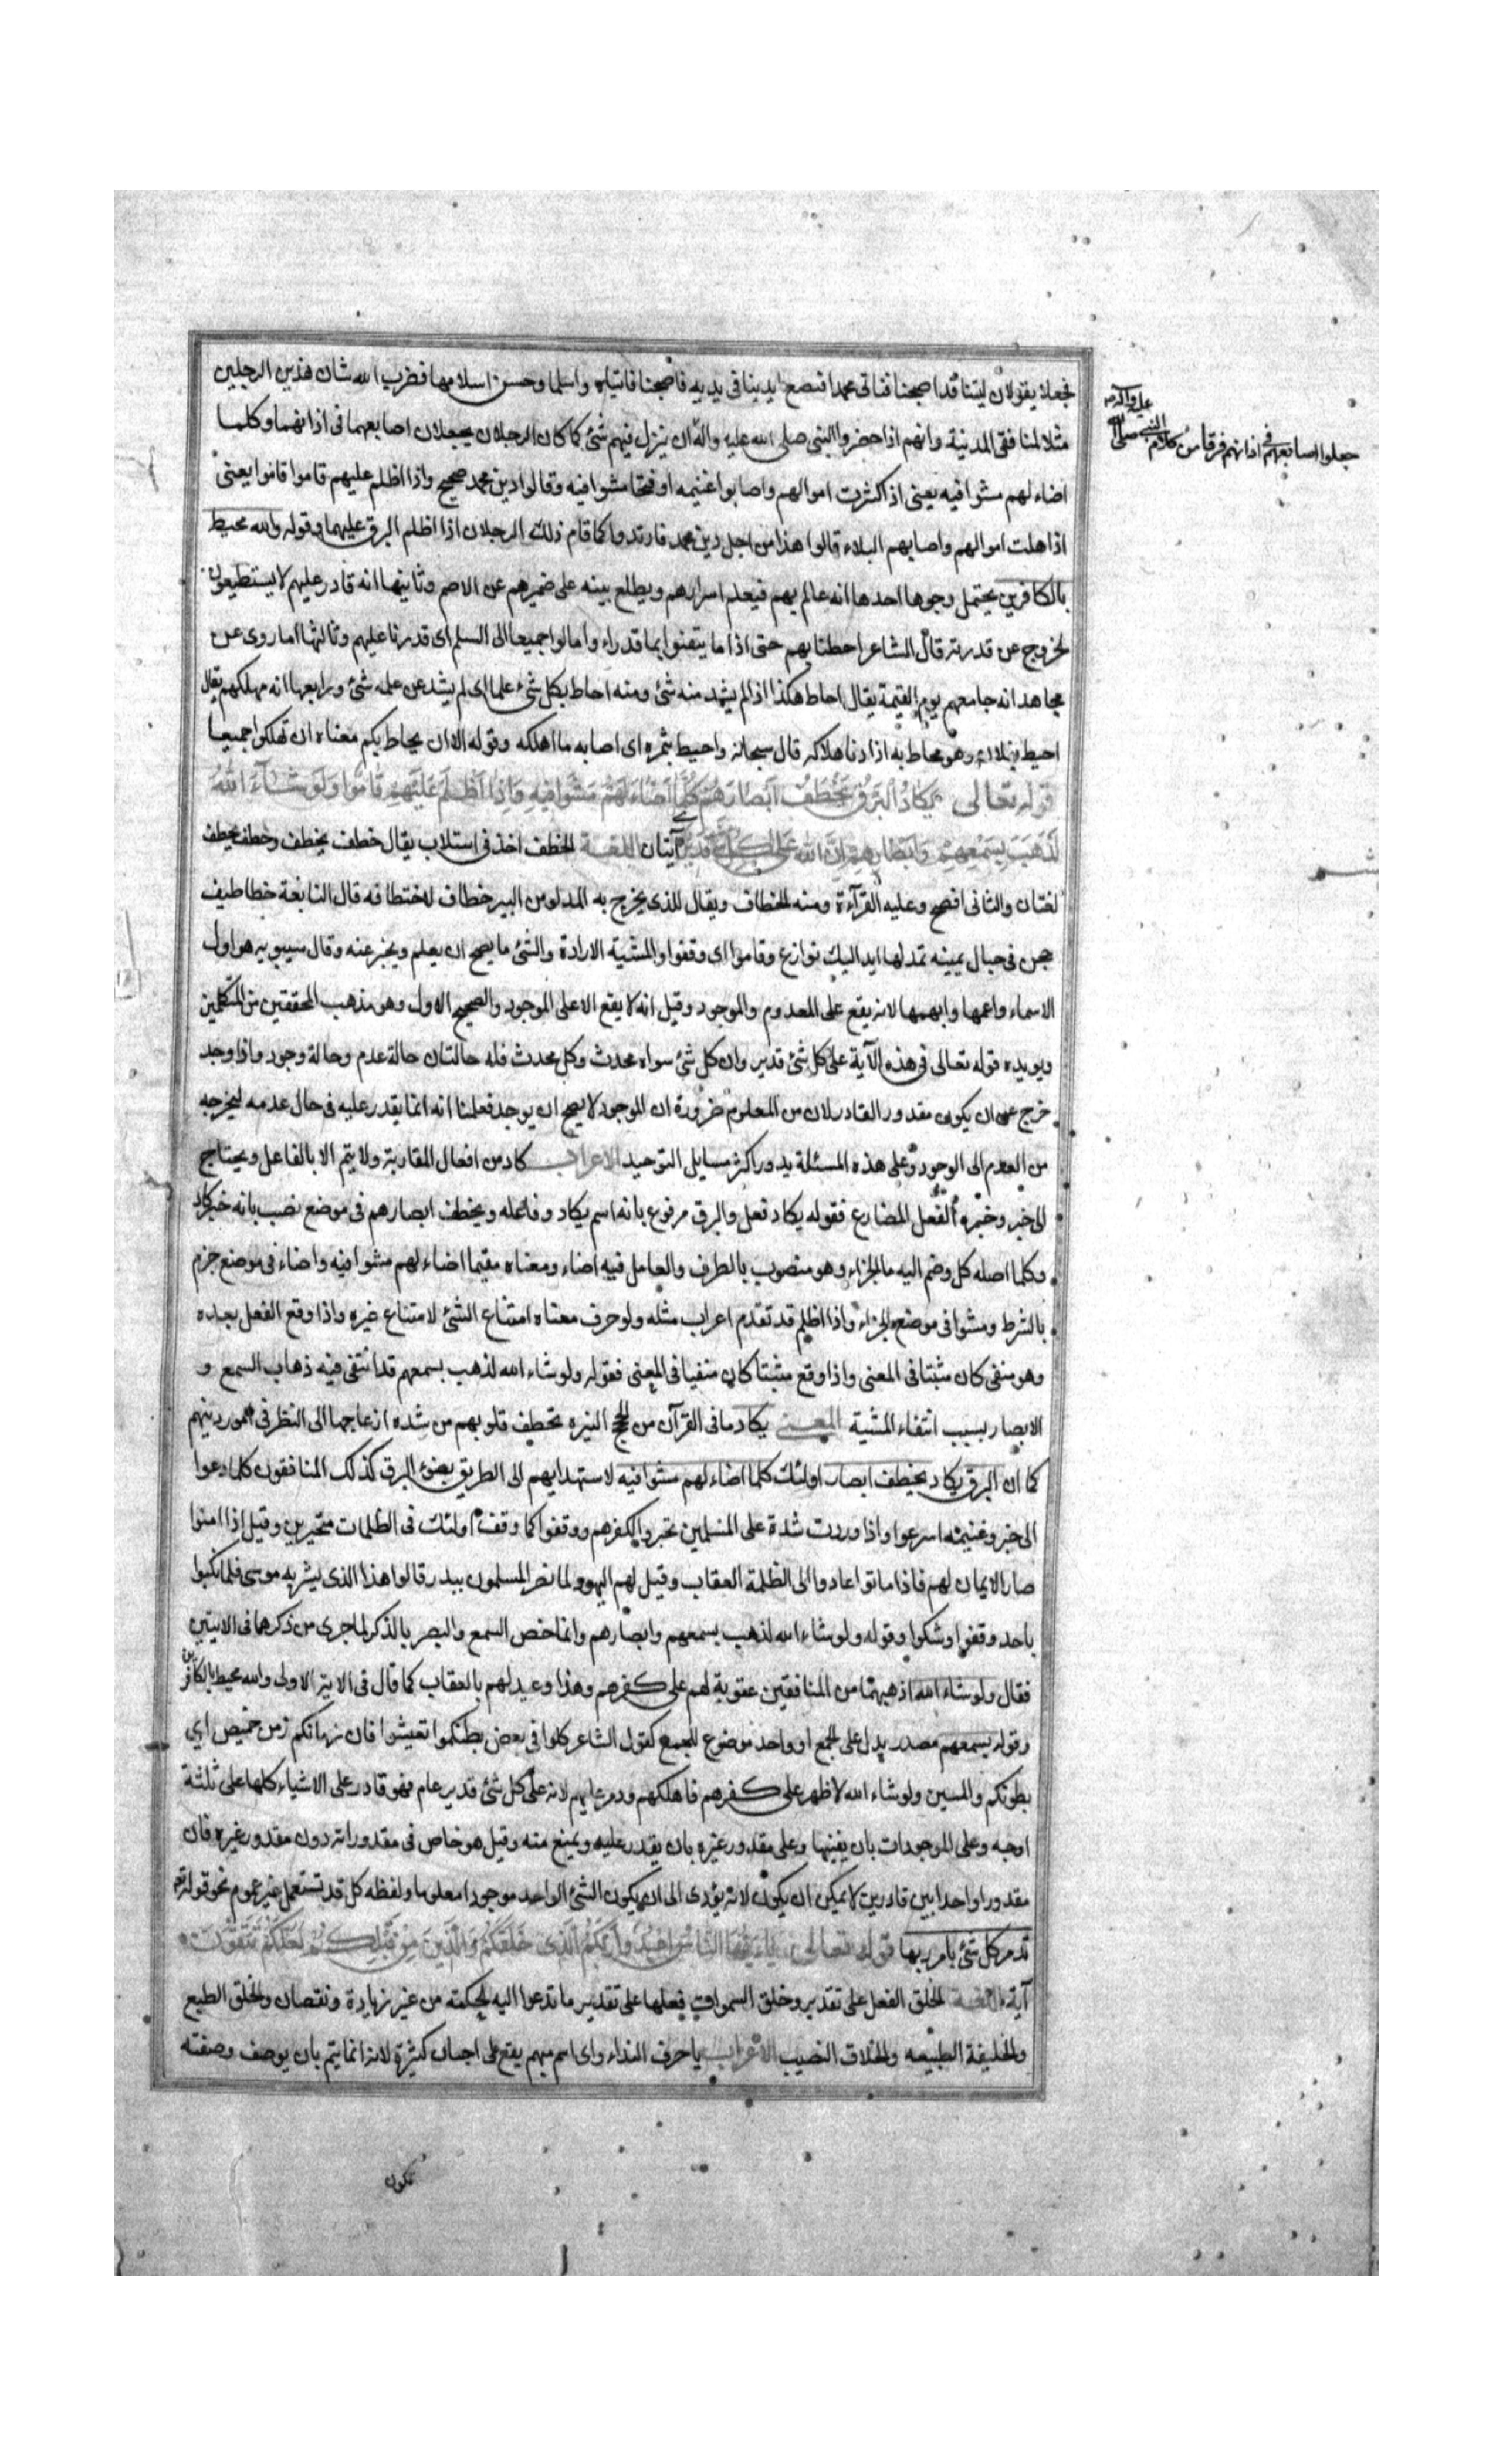 فجعلا يقولان ليتنا قد اصبحنا فناتى محمدا فنضع ايدينا فى يديه فاصبحنا فاتياه واسلما وحسن اسلامهما فضرب الله شان هذين الرجلين
مثلا لمنافقى المدينة وانهم اذا حضروا النبى صلى الله عليه واله ان ينزل فيهم شئ كما كان الرجلان يجعلان اصابعهما فى اذانهما وكلما
اضاء لهم مشوا فيه يعنى اذ اكثرت اموالهم واصابوا غنيمه او فتحا مشوا فيه وقالوا دين محمد صحيح واذا اظلم عليهم قاموا قاموا يعنى
اذا هلت اموالهم واصابهم البلاء قالوا هذا من اجل دين محمد فارتدوا كما قام ذلك الرجلان اذا اظلم البرق عليهما وقوله والله محيط
بالكافرين يحتمل وجوها احدها انه عالم بهم فيعلم اسرارهم ويطلع بينه على ضميرهم عن الاصم وثانيها انه قادر عليهم لا يستطيعون
الخروج عن قدرته قال الشاعر احطنا بهم حتى اذا ما يتقنوا بما قد راء وامالوا جميعا الى السلم اى قدرنا عليهم وثالثها ما روى عن
مجاهد انه جامعهم يوم القيمة يقال احاط هكذا اذا لم يشد منه شئ ومنه احاط بكل شئ علما اى لم يشد عن علمه شئ ورابعها انه مهلكهم يقال
احيط بفلان وهو محاط به اذا دنا هلاكه قال سبحانه واحيط بثمره اى اصابه ما اهلكه وقوله الا ان يحاط بكم معناه ان تهلكوا جميعا
قوله تعالى يَكادُ البَرقُ يَخطَفُ اَبصارَهُم كُلَّما اَضاءَ لَهُم مَشَوا فيهِ وَاِذا اَظلَمَ عَلَيهِم قاموا وَلَو شاءَ اللهُ
لَذَهَبَ بِسَمعِهِم وَاَبصارِهِم اِنَّ اللهَ عَلى كُلِّ شَئ قَديرٌ آيتان اللغة الخطف اخذ فى استلاب يقال خطف يخطف وخطف يخطف
لغتان والثانى افصح وعليه القرآءة ومنه الخطاف ويقال للذى يخرج به الدلو من البير خطاف لاختطافه قال النابغة خطاطيف
حجن فى حبال يمينه تمد لها ايد اليك نوازع وقاموا اى وقفوا والمشية الارادة والشئ ما يصح ان يعلم ويخبر عنه وقال سيبويه هو اول
الاسماء واعمها وابهمها لانه يقع على المعدوم والموجود وقيل انه لا يقع الا على الموجود والصحيح الاول وهو مذهب المحققين من المتكلمين
ويويده قوله تعالى فى هذه الآية على كل شئ قدير وان كل شئ سواه محدث وكل محدث فله حالتان حالة عدم وحالة وجود واذا وجد
خرج عن ان يكون مقدور القادر لان من المعلوم ضرورة ان الموجود لا يصح ان يوجد فعلمنا انه انما يقدر عليه فى حال عدمه ليخرجه
من العدم الى الوجود وعلى هذه المسئلة يدور اكثر مسايل التوحيد الاعراب كاد من افعال المقاربة ولا يتم الا بالفاعل ويحتاج
الى خبر وخبره الفعل المضارع فقوله يكاد فعل والبرق مرفوع بانه اسم يكاد وفاعله ويخطف ابصارهم فى موضع نصب بانه خبر كاد
وكلما اصله كل وضم اليه ما الجزاء وهو منصوب بالظرف والعامل فيه اضاء ومعناه مقيما اضاء لهم مشوا فيه واضاء فى موضع جزم
بالشرط ومشوا فى موضع الجزاء واذا اظلم قد تقدم اعراب مثله ولو حرف معناه امتناع الشئ لامتناع غيره واذا وقع الفعل بعده
وهو منفى كان مثبتا فى المعنى واذا وقع مثبتا كان منفيا فى المعنى فقوله ولو شاء الله لذهب بسمعهم قد انتفى فيه ذهاب السمع و
الابصار بسبب انتفاء المشية المعنى يكاد ما فى القرآن من الحجج النيره تخطف قلوبهم من شده ازعاجها الى النظر فى امور دينهم
كما ان البرق يكاد يخطف ابصار اولئك كلما اضاء لهم مشوا فيه لاستهدائهم الى الطريق بضوء البرق كذلك المنافقون كلما دعوا
الى خير وغنيمه اسرعوا واذا وردت شدة على المسلمين تحيروا لكفرهم ووقفوا كما وقف اولئك فى الظلمات متحيرين وقيل اذا امنوا
صار الايمان لهم فاذا ماتوا عادوا الى الظلمة العقاب وقيل لهم اليهود لما نصر المسلمون ببدر قالوا هذا الذى بشر به موسى فلما نكبوا
باحد وقفوا وشكوا وقوله ولو شاء الله لذهب بسمعهم وابصارهم وانما خص السمع والبصر بالذكر لما جرى من ذكرهما فى الايتين
فقال ولو شاء الله اذهبهما من المنافقين عقوبة لهم على كفرهم وهذا وعيد لهم بالعقاب كما قال فى الاية الاولى والله محيط بالكافرين
وقوله بسمعهم مصدر يدل على الجمع او واحد موضوع للجمع كقول الشاعر كلوا فى بعض بطنكموا تعيشوا فان زمانكم زمن خميص اى
بطونكم والمسين ولو شاء الله لاظهر على كفرهم فاهلكهم ودمر عليهم لانه على كل شئ قدير عام فهو قادر على الاشياء كلها على ثلثة
اوجه وعلى الموجودات بان يفنيها وعلى مقدور غيره بان يقدر عليه ويمنع منه وقيل هو خاص فى مقدوراته دون مقدور غيره فان
مقدورا واحدا بين قادرين لا يمكن ان يكون لانه يؤدى الى ان يكون الشئ الواحد موجودا معلوما ولفظه كل قد تستعمل غير عموم نحو قوله تع
تدمر كل شئ بامر ربها قوله تعالى يا اَيُّهَا النّاسُ اعبُدُوا رَبَّكُمُ الَّذى خَلَقَكُم وَالَّذينَ مِن قَبلِكُم لَعَلَّكُم تَتَّقُونَ
آية اللغة الخلق الفعل على تقدير وخلق السموات فعلها على تقدير ما تدعوا اليه الحكمته من غير زيادة ونقصان والخلق الطبع
والخليقة الطبيعه والخلاق النصيب الاعراب يا حرف النداء واى اسم مبهم يقع على اجناس كثيرة لانه انما يتم بان يوصف وصفته
جعلوا اصابعهم فى اذانهم فرقا من كلام النبى صلى الله
عليه واله
تكون